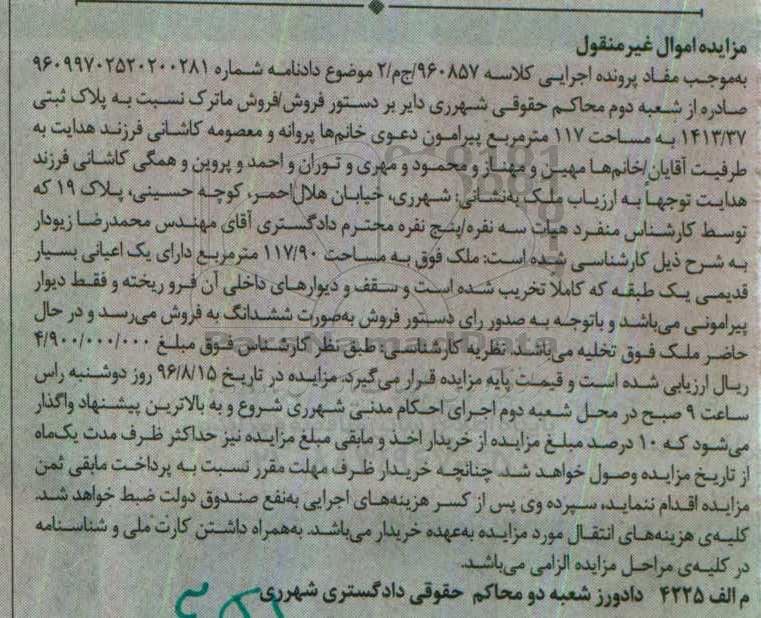 مزایده اموال غیرمنقول
به‌موجب مفاد پرونده اجرایی کلاسه ۹۶۰۸۵۷/ج‌م/۲ موضوع دادنامه شماره ۹۶۰۹۹۷۰۲۵۲۰۲۰۰۲۸۱
صادره از شعبه دوم محاکم حقوقی شهرری دایر بر دستور فروش/فروش ماترک نسبت به پلاک ثبتی
۱۴۱۳/۳۷ به مساحت ۱۱۷ مترمربع پیرامون دعوی خانم‌ها پروانه و معصومه کاشانی فرزند هدایت به
طرفیت آقایان/خانم‌ها مهین و مهناز و محمود و مهری و توران و احمد و پروین و همگی کاشانی فرزند
هدایت توجهاً به ارزیاب ملک به‌نشانی: شهرری، خیابان هلال‌احمر، کوچه حسینی، پلاک ۱۹ که
توسط کارشناس منفرد هیات سه نفره/پنج نفره محترم دادگستری آقای مهندس محمدرضا زیودار
به شرح ذیل کارشناسی شده است: ملک فوق به مساحت ۱۱۷/۹۰ مترمربع دارای یک اعیانی بسیار
قدیمی یک طبقه که کاملا تخریب شده است و سقف و دیوارهای داخلی آن فرو ریخته و فقط دیوار
پیرامونی می‌باشد و باتوجه به صدور رای دستور فروش به‌صورت ششدانگ به فروش می‌رسد و در حال
حاضر ملک فوق تخلیه می‌باشد. نظریه کارشناسی: طبق نظر کارشناس فوق مبلغ ۴/۹۰۰/۰۰۰/۰۰۰
ریال ارزیابی شده است و قیمت پایه مزایده قرار می‌گیرد. مزایده در تاریخ ۹۶/۸/۱۵ روز دوشنبه راس
ساعت ۹ صبح در محل شعبه دوم اجرای احکام مدنی شهرری شروع و به بالاترین پیشنهاد واگذار
می‌شود که ۱۰ درصد مبلغ مزایده از خریدار اخذ و مابقی مبلغ مزایده نیز حداکثر ظرف مدت یک‌ماه
از تاریخ مزایده وصول خواهد شد. چنانچه خریدار ظرف مهلت مقرر نسبت به پرداخت مابقی ثمن
مزایده اقدام ننماید، سپرده وی پس از کسر هزینه‌های اجرایی به‌نفع صندوق دولت ضبط خواهد شد.
کلیه‌ی هزینه‌های انتقال مورد مزایده به‌عهده خریدار می‌باشد. به‌همراه داشتن کارت ملی و شناسنامه
در کلیه‌ی مراحل مزایده الزامی می‌باشد.
م الف ۴۲۲۵ دادورز شعبه دو محاکم حقوقی دادگستری شهرری
ParsNamadData